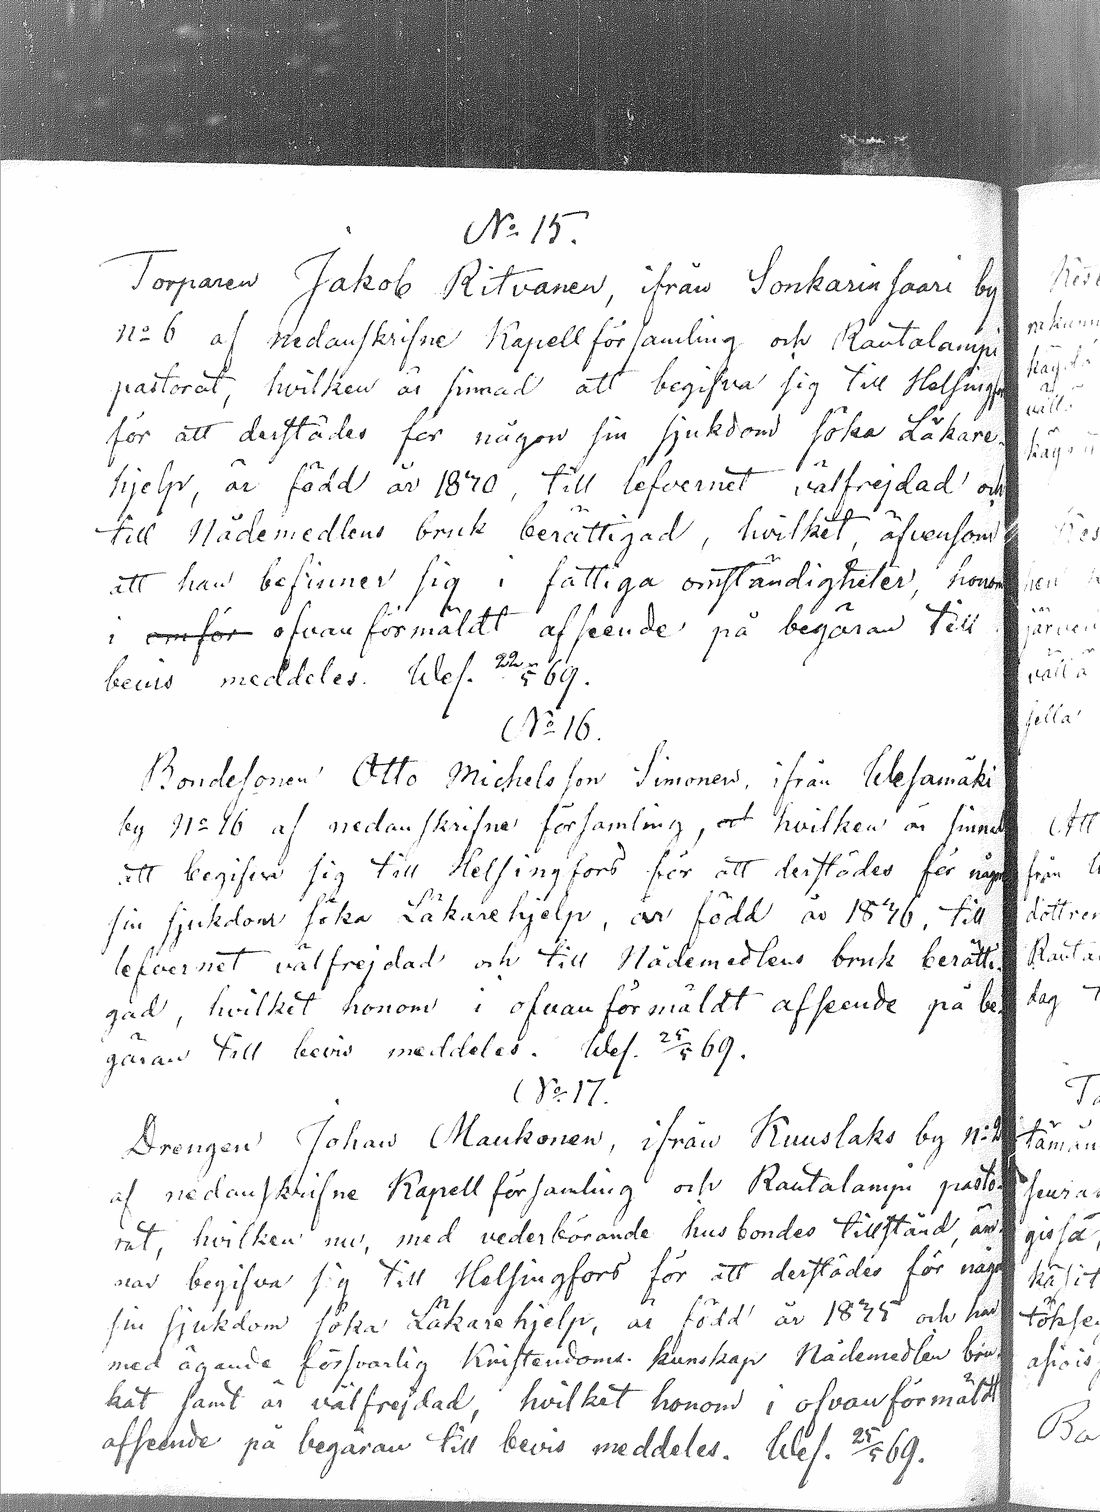 No 15.
Torparen Jakob Ritvanen, ifrån Sonkarinsaari by
no 6 af nedanskrifne Kapellförsamling och Rautalampi
pastorat, hvilken är sinnad att begifva sig till Helsingfor
för att derstädes för någon sin sjukdom söka Läkare-
hjelp, är född år 1840, till lefvernet välfrejdad och
till Nådemedlens bruk berättigad, hvilket, äfvensom
att han befinner sig i fattiga omständigheter, honom
i omför ofvanförmäldt afseende på begäran till
bevis meddeles. Wes. 22/5 69.
No 16.
Bondesonen Otto Michelsson Simonen, ifrån Wesamäki
by No 16 af nedanskrifne församling, och hvilken är sinnad
att begifva sig till Helsingfors för att derstädes för någon
sin sjukdom söka Läkarehjelp, är född år 1846, till
lefvernet välfrejdad och till Nådemedlens bruk berätti-
gad, hvilket honom i ofvanförmäldt afseende på be-
gäran till bevis meddeles. Wes. 25/5 69.
No 17.
Drengen Johan Maukonen, ifrån Kuuslaks by no 2
af nedanskrifne Kapellförsamling och Rautalampi pasto-
rat, hvilken nu, med vederbörande husbondes tillstånd, äm-
nar begifva sig till Helsingfors för att derstädes för någon
sin sjukdom söka Läkarehjelp, är född år 1845 och har
med ägande försvarlig Kristendoms kunskap Nådemedlen bru-
kat samt är välfrejdad, hvilket honom i ofvanförmäldt
afseende på begäran till bevis meddeles. Wes. 25/5 69.
kägdä
wällä
järven
wällä
sella
Att
från
döttren
Rauta
dag
tämän
seuran
gissa,
käsit
töksen
Ba